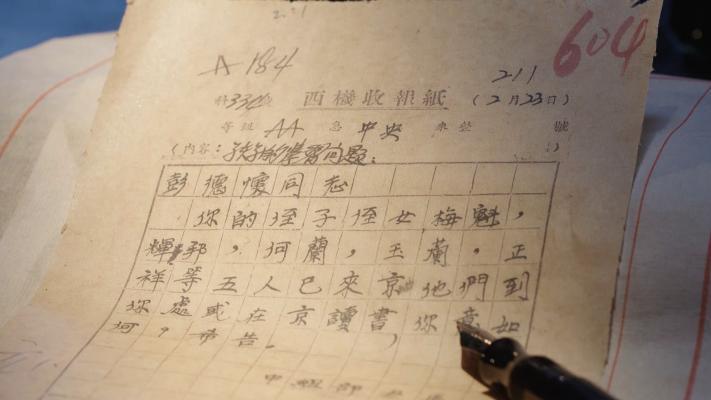 604
A 184
211
西機收報紙 (2月23日)
等級 AA 急 中央 來 號
(內容:孩子的學習问题。)
彭德懷同志
你的侄子侄女梅魁,
輝邦,何蘭,玉蘭,正
祥等五人已來京他們到
你處或在京讀書,你意如
何,市告。